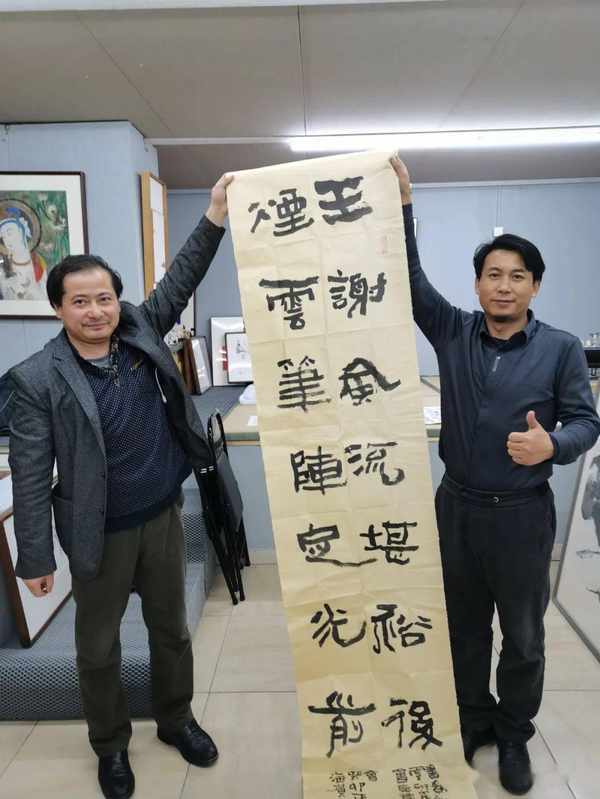 王謝風流堪裕後
煙雲筆陣定光前